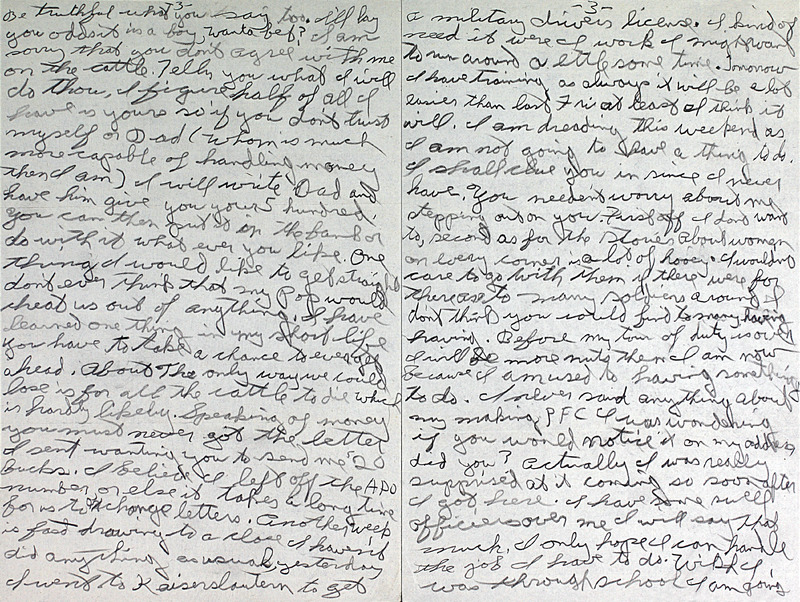 -3-
Be truthful what you say too. I'll lay
you odds it is a boy. Wanta bet? I am
sorry that you don't agree with me
on the cattle. Tell you what I will
do thou, I figure half of all I
have is yours so if you don't trust
myself or Dad (whom is much
more capable of handling money
then I am) I will write Dad and
have him give you your 5 hundred,
you can then put it in the bank or
do with it what ever you like. One
thing I would like to get straight
dont ever think that my Pop would
cheat us out of anything. I have
learned one thing in my short life
you have to take a chance to ever get
ahead. About the only way we could
lose is for all the cattle to die which
is hardly likely. Speaking of money
you must never got the letter
I sent wanting you to send me 20
bucks. I believe I left off the APO
number or else it takes a long time
for us to exchange letters. Another week
is fast drawing to a close I haven't
did anything as usual, yesterday
I went to Kaiserslautern to get
-3-
a military drivers license. I kind of
need it were I work I might want
to run around a little some time. Tomorrow
I have training as always it will be a lot
easier than last Fri at least I think it
will. I am dreading this weekend as
I am not going to have a thing to do.
I shall clue you in since I never
have. You needent worry about me
stepping out on you. First off I dont want
to, second as for the stories about women
on every corner is a lot of hooey. I wouldnt
care to go with them if there were for
there are to many soldiers around. I
dont think you would find to many having
having. Before my tour of duty is over
I will be more nuts then I am now
because I am used to having something
to do. I never said anything about
my making PFC I was wondering
if you would notice it on my address
did you? Actually I was really
surprised at it coming so soon after
I got here. I have some swell
officers over me I will say that
much. I only hope I can handle
the job I have to do. Wish I
was through school I am going